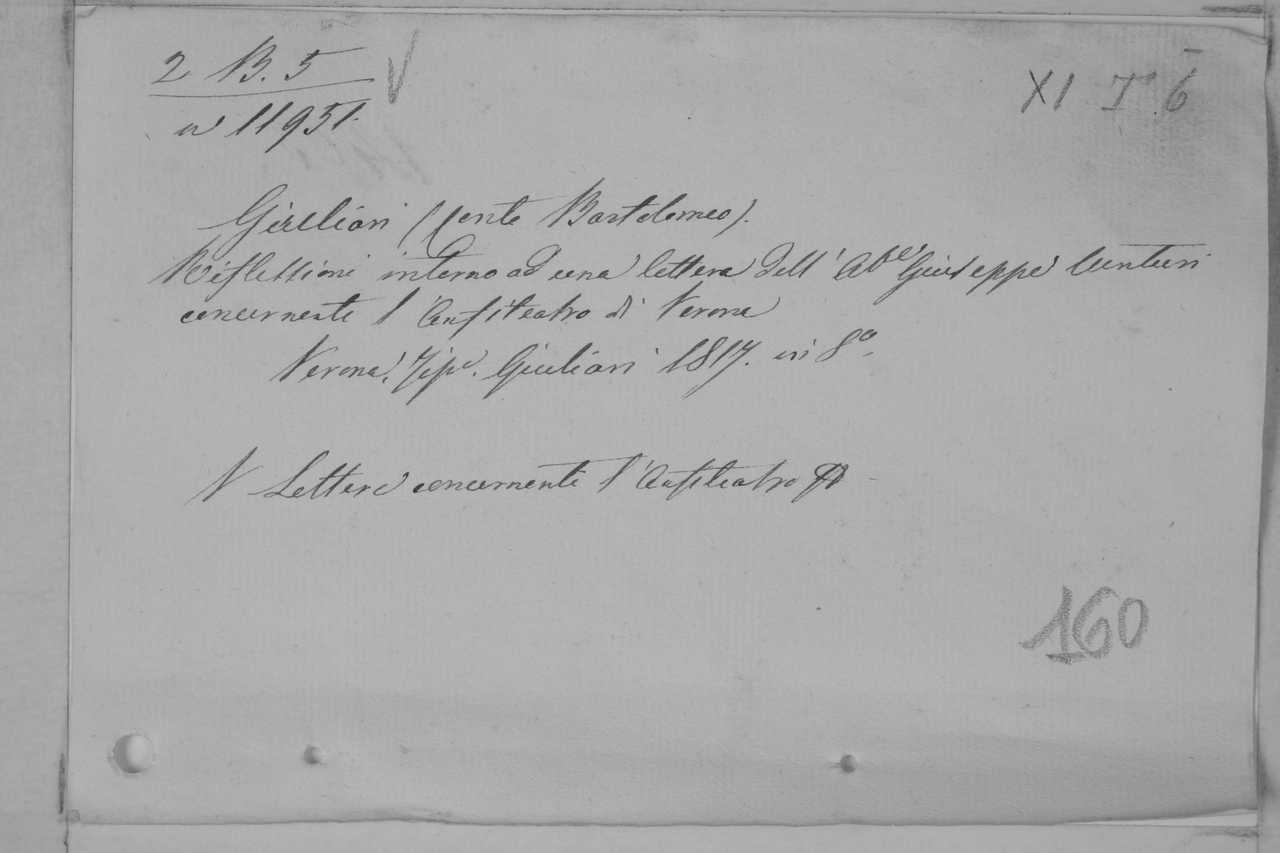 2 B. 5
XI I 6
n 11951.
Giuliari (Conte Bartolomeo).
Riflessioni intorno ad una lettera dell' Ab.e Giuseppe Venturi
concernente l'Anfiteatro di Verona
Verona, Tip. Giuliari 1817. in 8º.
V Lettere concernente l'Anfiteatro
160